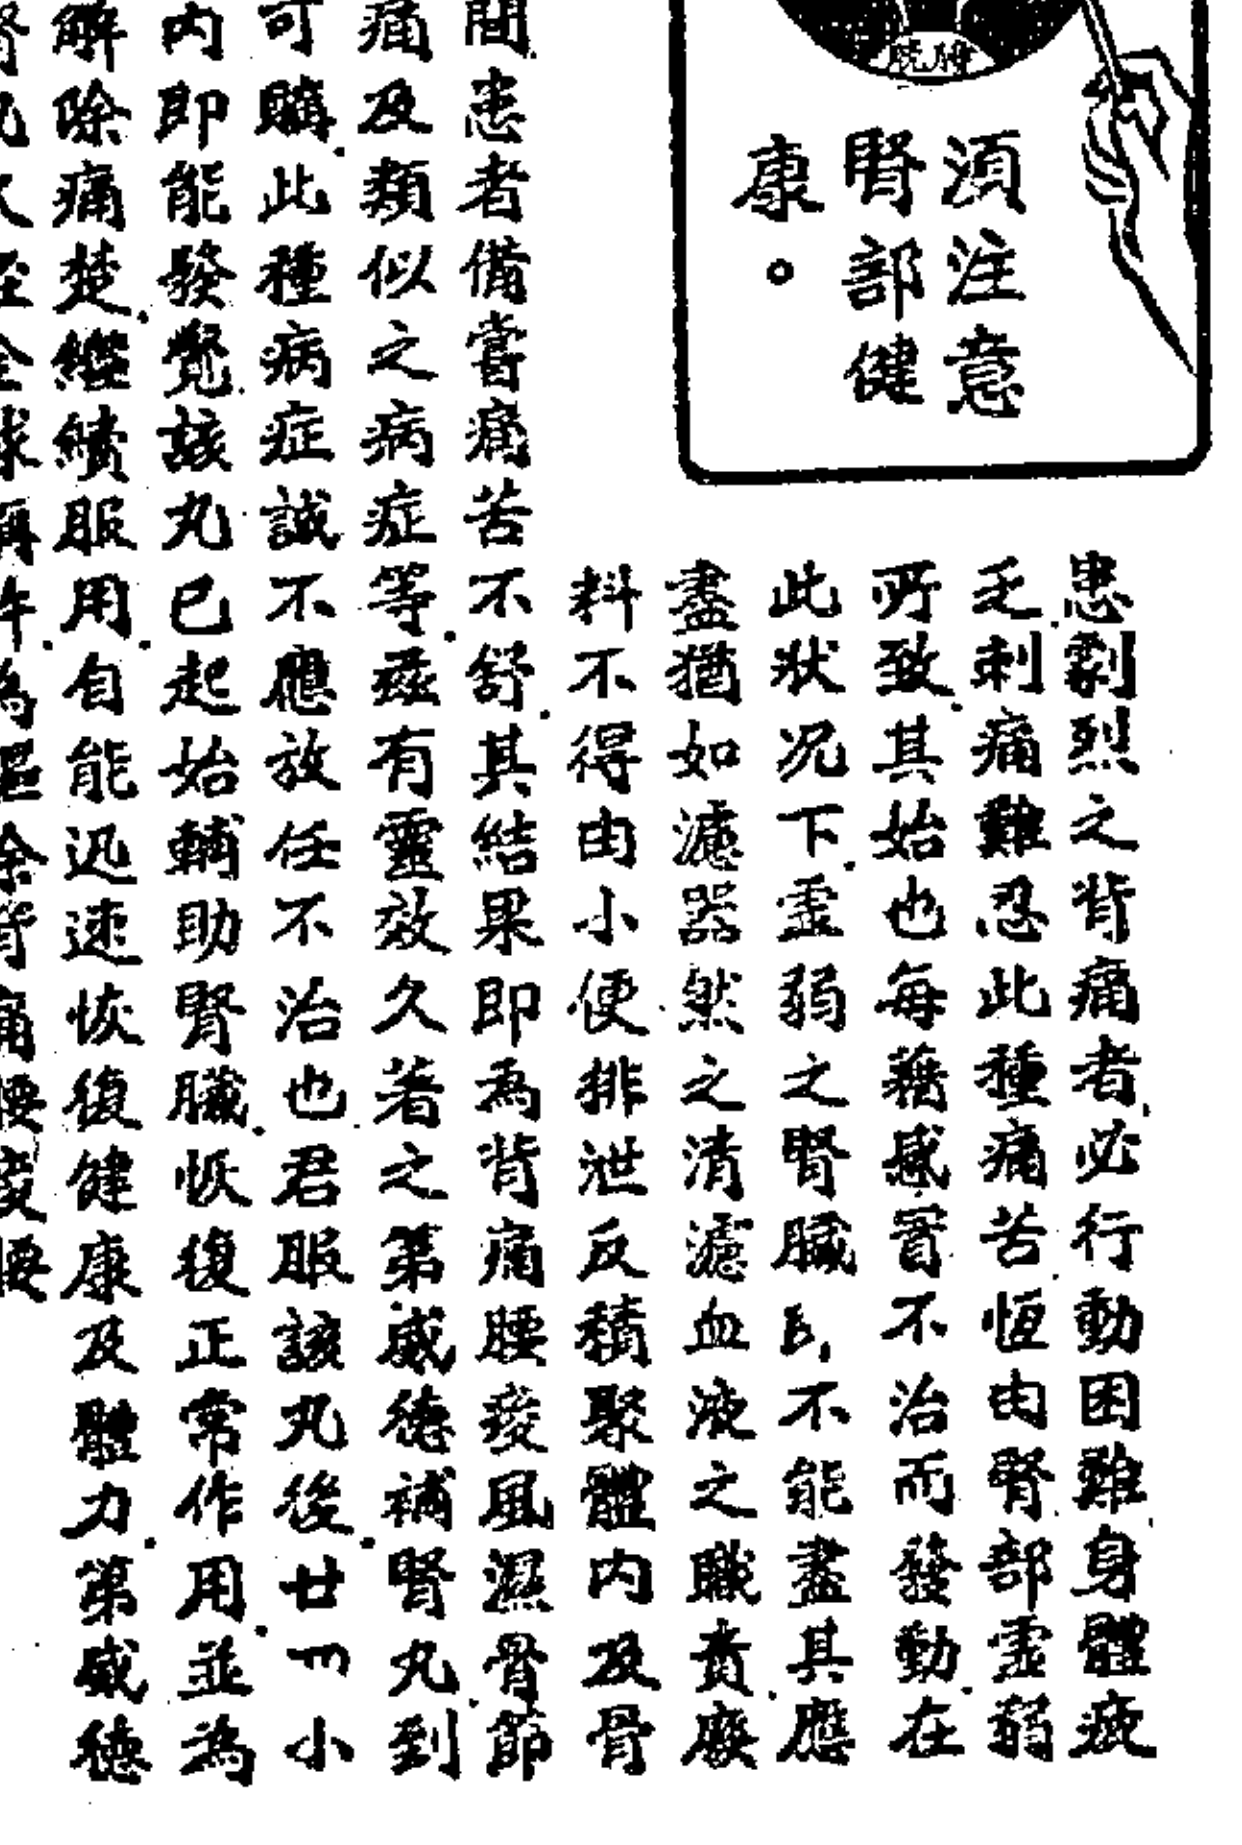 膀胱
須注意
腎部健
康。
患劇烈之背痛者.必行動困難.身體疲
乏.刺痛難忍此種痛苦恆由腎部虛弱
所致.其始也每藉感冒不治而發動.在
此狀况下.虛弱之腎臟 不能盡其應
盡猶如濾器然之清濾血液之職責.廢
料不得由小便排泄反積聚體内及骨
間.患者備嘗痛苦不舒.其結果即為背痛腰痠風濕骨節
痛及類似之病症等.茲有靈效久著之第威德補腎丸.到
可購.此種病症誠不應放任不治也.君服該丸後.廿四小
内即能發覺該丸已起始輔助腎臟.恢復正常作用.並為
解除痛楚.繼續服用.自能迅速恢復健康及體力.第威德